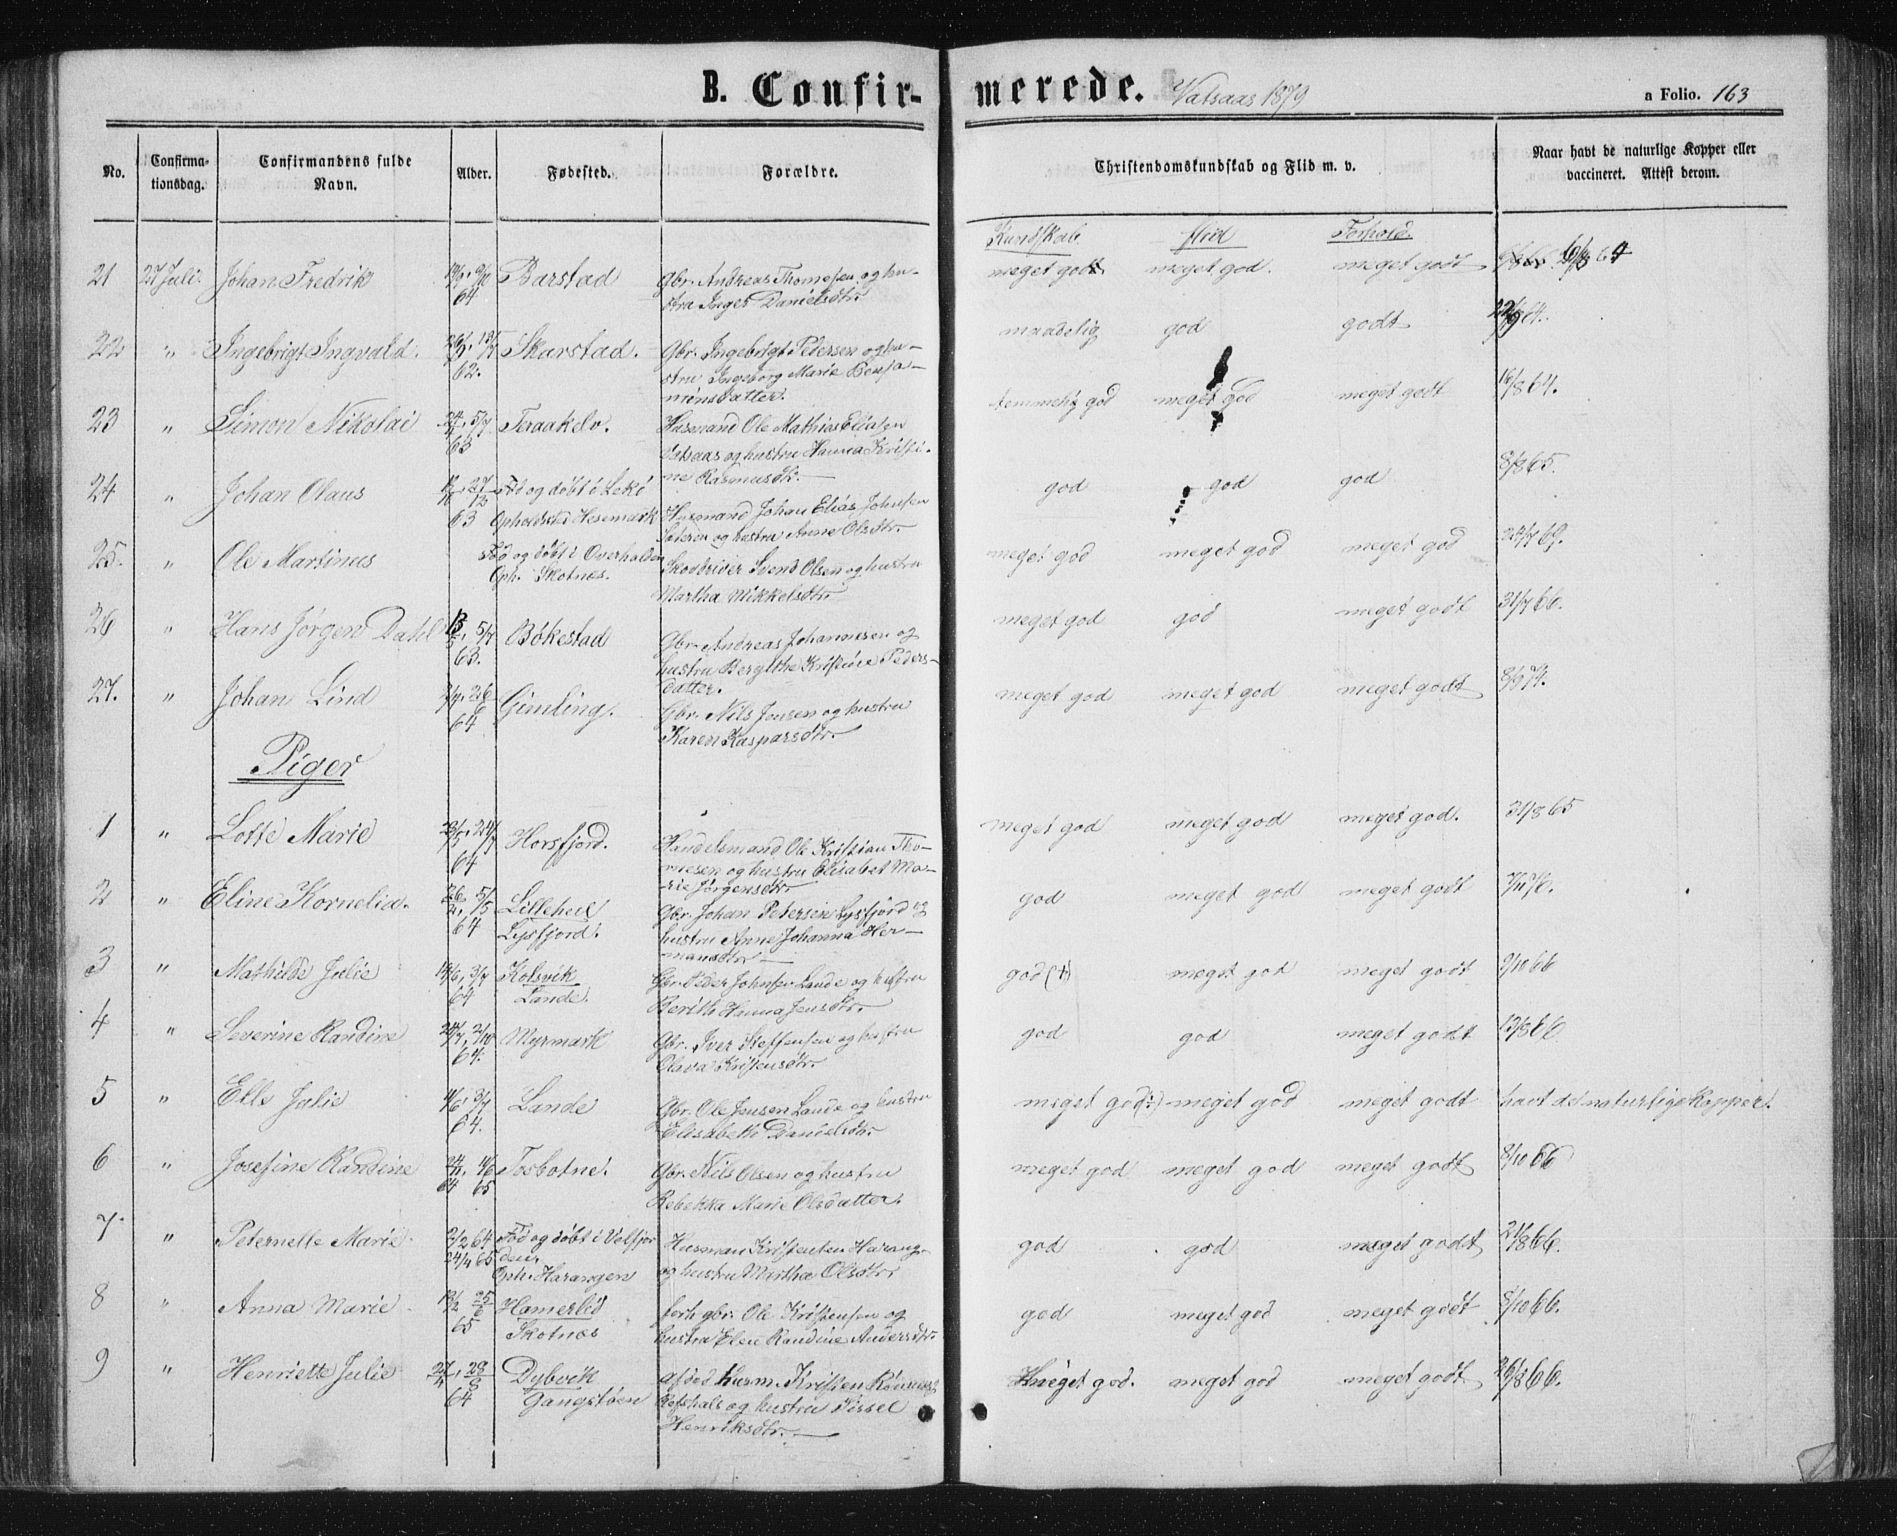 B. Confir-
merede.
Vatsaas 1879
a Folio. 163
No.
Confirma-
tionsdag.
Confirmandens fulde
Navn.
Alder.
Fødested.
Forældre.
Christendomskundskab og Flid m. v.
Naar havt de naturlige Kopper eller
vaccineret. Attest derom.
Kundskab. flid Forhold.
21 27 Juli. Johan Fredrik 64 Barstad Gbr. Andreas Thomesen og hu-
stru Inger Danielsdtr.
meget godt meget god. meget godt
22 " Ingebrigt Ingvald. 62. Skarstad. Gbr. Ingebrigt Pedersen og hu-
stru Ingeborg Marie Benja-
minsdatter.
maadelig god godt
23 " Simon Nikolai 63 Teraakelv. Husmand Ole Mathias Eliasen
Vatsaas og hustru Hanna Kristi-
ne Rasmusdtr.
temmelig god meget god meget godt 16/8 64.
24 " Johan Olaus 63 Fød og døbt i Lekø
Opholdsted Hesemark
Husmand Johan Elias Johnsen
og hustru Anne Olsdtr.
god god god 8/8 65.
25. " Ole Martinus Fød og døbt i Overhalden
Oph. Skotnes.
Skoværider Svend Olsen og hustru
Martha Mikkelsdtr.
meget god meget god meget god 24/7 69.
26 " Hans Jørgen Dahl 63. Bøkestad Gbr. Andreas Johannesen og
hustru Bergithe Kristine Peders-
datter.
meget god god meget godt 31/7 66.
27. " Johan Lind 64 Gimling. Gbr. Nils Jensen og hustru
Karen Kaspersdtr.
meget god meget god meget godt
Piger
1 " Lotte Marie 64 Horsfjord. Handelsmand Ole Kristian Tho-
mesen og hustru Elisabet Ma-
rie Jørgensdtr.
meget god meget god meget god. 31/8 65
2 " Eline Kornelia. 64 Lilleheil
Lysfjord.
Gbr. Johan Petersen Lysfjord og
hustru Anne Johanna Her-
mansdtr
god meget god meget godt
3 " Mathilde Julie 64 Kolsvik
Lande.
Gbr. Peder Johnsen Lande og hustru
Berith Hanna Jensdtr.
god (+) meget god meget godt 9/10 66
4 " Severine Randine 64. Myrmark Gbr. Iver Steffensen og hustru
Olava Kristensdtr.
god god meget godt 13/8 66
5 " Elle Julie 64. Lande Gbr. Ole Jensen Lande og hustru
Elisabeth Danielsdtr.
meget god(÷) meget god meget godt havt de naturlige Kopper.
6 " Josefine Randine 64 65 Tosbotne. Gbr. Nils Olsen og hustru
Rebekka Marie Olsdatter.
meget god meget god meget godt 8/10 66
7. " Peternelle Marie. Fød og døbt i Velfjor
den,
Oph. Harangen
Husman Kristen Harang-
og hustru Mirtha Olsdtr
god god meget godt 21/8 66.
8 " Anna Marie 65 Hamerlid
Skotnes
forh gbr. Ole Kristensen og
hustru Elen Randine Andersdtr.
god meget god meget godt 8/10 66.
9 " Henriette Julie 64 Dybvik
Gangstøen
afdød husm. Kristen
og hustru Sissel
Henriksdtr.
meget god. meget god meget godt 26/8 66.